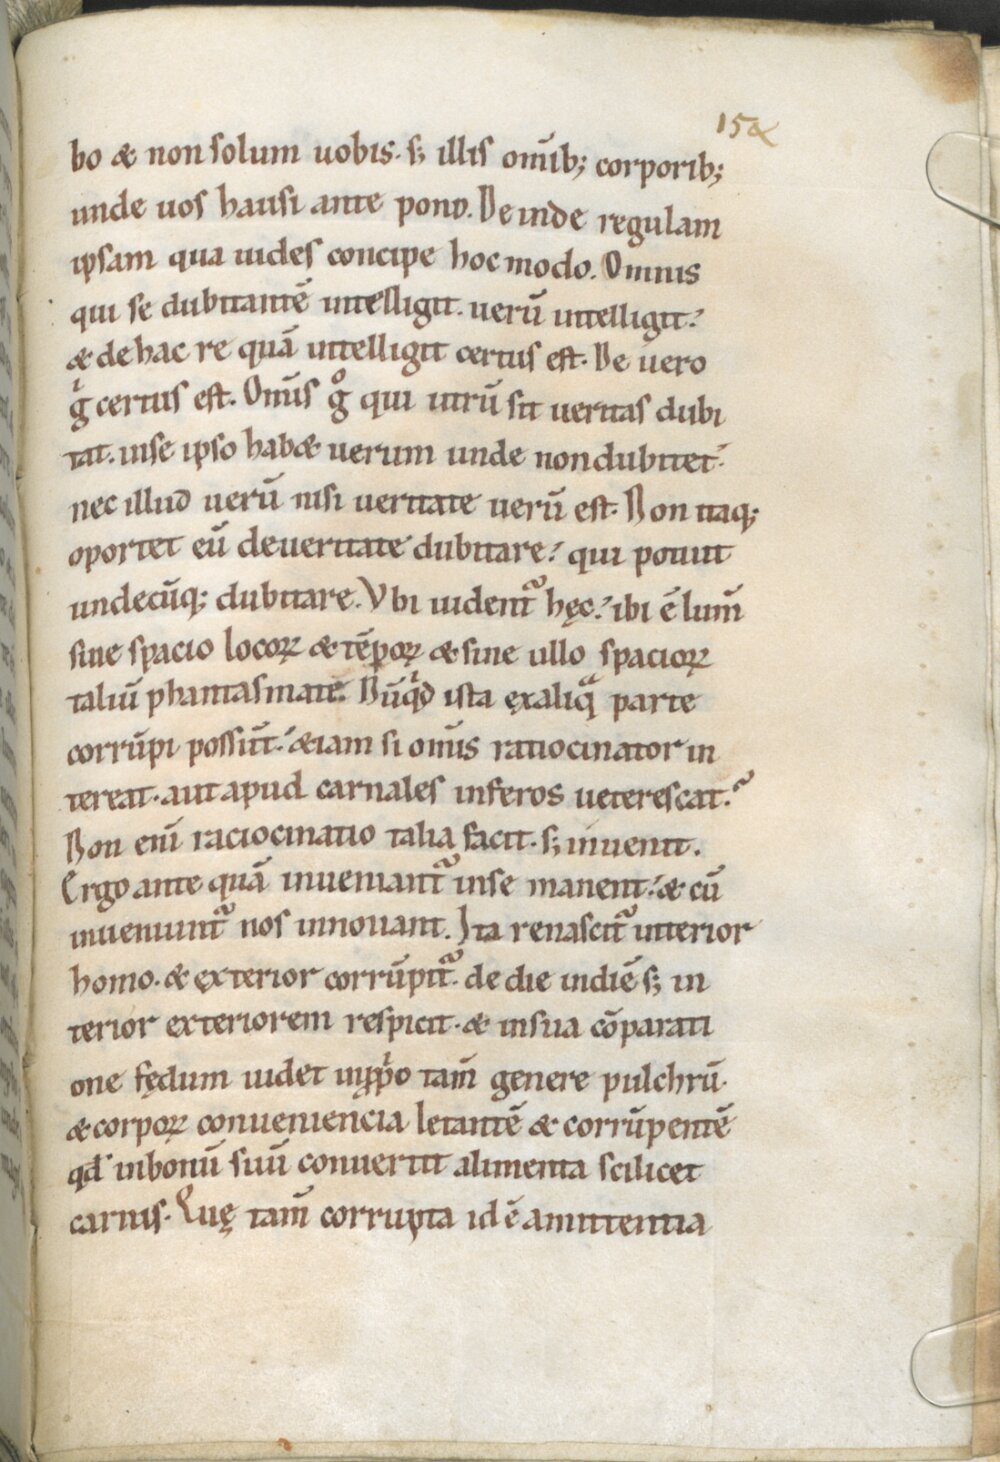 15a
bo & non solum uobis. s; illis om̄ib; corporib;
unde uos hausi ante pono. Deinde regulam
ipsam qua uides concipe hoc modo. Omnis
qui se dubitantē intelligit. uerū intelligit.
& de hac re quā intelligit certus est. De uero
gͥ certus est. Om̄is gͦ qui utrū sit ueritas dubi
tat. inse ipso hab& uerum unde non dubitet.
nec illud uerū nisi ueritate uerū est. Non itaq;
oportet eū deueritate dubitare. qui potuit
undecūq; dubitare. Vbi uident᷑ hęc. ibi ē lum̄
sine spacio locoꝝ & tēporꝝ & sine ullo spacioꝝ
taliū phantasmate. Nūqͥd ista exaliqͣ parte
corrūpi possūt. &iam si om̄is ratiocinator in
tereat. aut apud carnales inferos ueterescat.
Non enī raciocinatio talia facit. s; inuenit.
Ergo ante quā inueniant᷑ inse manent. & cū
inueniunt᷑ nos innouant. Ita renascit᷑ interior
homo. & exterior corrūpit᷑ de die indiē s; in
terior exteriorem respicit. & insua cōparati
one fędum uidet inpͥpͥo tam̄ genere pulchrū.
& corporꝝ conueniencia letantē & corrūpentē
qd̄ inbonū suū conuertit alimenta scilicet
carnis. Quę tam̄ corrupta id ē amittentia